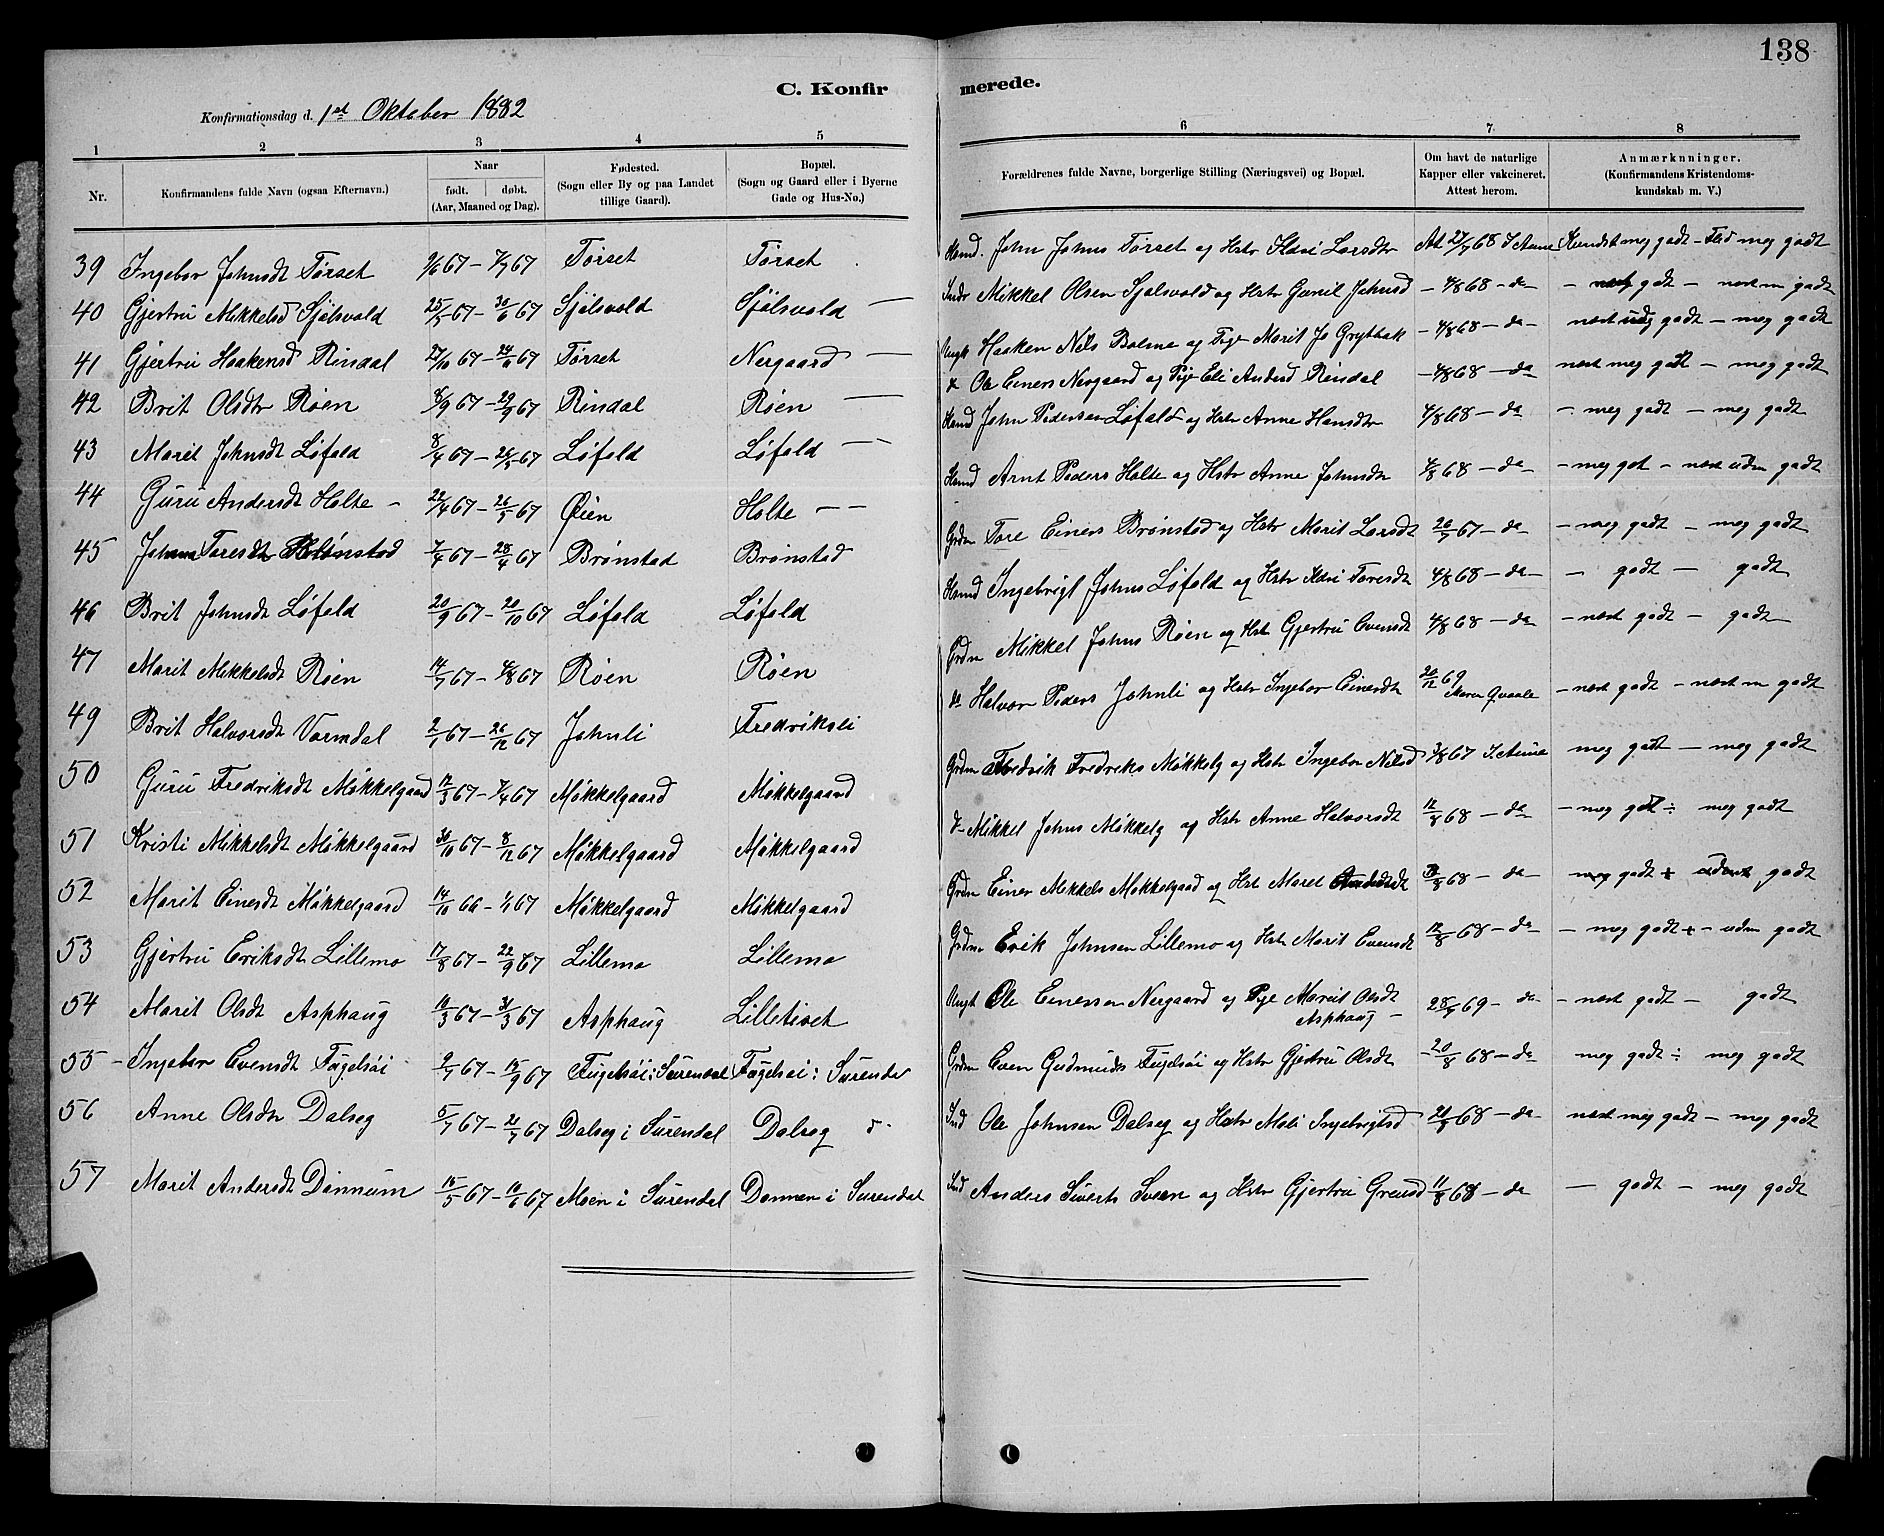 138
C. Konfirmerede.
Konfirmationsdag d. 1st Oktober 1882
1 2 3 4 5 6 7 8
Nr.
Konfirmandens fulde Navn (ogsaa Efternavn.)
Naar
født. døbt.
(Aar, Maaned og Dag).
Fødested.
(Sogn eller By og paa Landet
tillige Gaard).
Bopæl.
(Sogn og Gaard eller i Byerne
Gade og Hus-No.)
Forældrenes fulde Navne, borgerlige Stilling (Næringsvei) og Bopæl.
Om havt de naturlige
Kapper eller vakcineret.
Attest herom.
Anmærknninger.
(Konfirmandens Kristendoms-
kundskab m. V.)
39 Ingebor Johnsdt Tørset 9/6 67 – 7/7 67 Tørset Tørset Hsmd. John Johns Tørset og Hstr Ildri Larsdtr Att 27/7 68 J Aune Kundst meg godt – Flid meg godt
40 Gjertru Mikkelsd Sjølsvold 25/5 67 – 30/6 67 Sjølsvold Sjølsvold — Indr Mikkel Olsen Sjølsvold og Hstr Gunil Johnsd – 4/8 68 – do – godt – næst m godt
41 Gjertru Haakensd Rindal 27/10 67 – 67 Tørset Nergaard — Ungk Haaken Nils Bolme og Pige Marit Jo Grytbak – 4/8 68 – do næst godt – meg godt
42 Brit Olsdtr Røen 8/9 67 – 29/9 67 Rindal Røen — Ole Einers Nergaard og Pige Eli Andersd Rindal – 4/8 68 – do næst meg godt – meg godt
43 Marit Johnsdt Løfald 8/4 67 – 26/5 67 Løfald Løfald — Hsmd John Pedersen Løfald og Hstr Anne Hansdtr 4/8 68 – do – meg godt – meg godt
44 Guru Andersdt Holte – 22/4 67 – 26/5 67 Øien Holte — Hsmd Arnt Peders Holte og Hstr Anne Johnsdtr 4/8 68 – do – meg got – næst uden godt
45 Johanna Toresdt Brønstad 7/4 67 – 28/4 67 Brønstad Brønstad Grdm Tore Einers Brønstad og Hstr Marit Larsdt 26/7 67 – do – meg godt – meg godt
46 Brit Johnsdt Løfald 20/9 67 – 20/10 67 Løfald Løfald Hsmd Ingebrigt Johns Løfald og Hstr Ildri Toresdt 4/8 68 – do – – godt – godt
47 Marit Mikkelsdt Røen 14/7 67 – 4/8 67 Røen Røen Grdm Mikkel Johns Røen og Hstr Gjertru Evensdt 4/8 68 – do – næst godt – godt
49 Brit Halvorsdt Vormdal 2/1 67 – 26/12 67 Johnli Fredriksli Halvor Peders Johnli og Hstr Ingebor Einersdt 20/12 69 Maren Qvaale – næst godt – næst m godt
50 Guru Fredriksdt Møkkelgaard 17/3 67 – 7/4 67 Møkkelgaard Møkkelgaard Grdm Fredrik Fredriks Møkkelg og Hstr Ingebor Nilsd 3/8 67 J. Aune meg godt – meg godt
51 Kristi Mikkelsdt Møkkelgaard 30/10 67 – 8/12 67 Møkkelgaard Møkkelgaard Mikkel Johns Møkkelg og Hstr Anne Halvorsdt 12/8 68 – do – meg godt ÷ meg godt
52 Marit Einersdt Møkkelgaard 14/10 66 – 1/1 67 Møkkelgaard Møkkelgaard Grdm Einer Mikkels Møkkelgaard og Hst Maret 68 – do – godt + godt
53 Gjertru Eriksdt Lillemo 17/8 67 – 22/9 67 Lillemo Lillemo Grdm Erik Johnsen Lillemo og Hstr Marit Evensdt 12/8 68 – do – – meg godt + – uden godt
54 Marit Olsdt Asphaug 10/3 67 – 31/3 67 Asphaug Lilletivet Ungk Ole Einersen Nergaard og Pige Marit Olsdt 69 – do – næst godt – godt
Asphaug –
55 – Ingebor Evensdt Fugelsøi 9/7 67 – 15/9 67 Fugelsøi i Surendal Fugelsøi i Surendal Grdm Even Gudmunds Fugelsøi og Hstr Gjertru Olsdt – 20/8 68 – do meg godt ÷ meg godt
56 Anne Olsdtr Dalseg 5/7 67 – 21/7 67 Dalseg i Surendal Dalseg d. Ind Ole Johnsen Dalseg og Hstr Mali Ingebrigtsd 68 – do – næst meg godt – meg godt
57 Marit Andersdt Dønnum 16/5 67 – 10/6 67 Moen i Surendal Dønnem i Surendal Ind Anders Siverts Sveen og Hstr Gjertru 11/8 68 – do – godt – meg godt